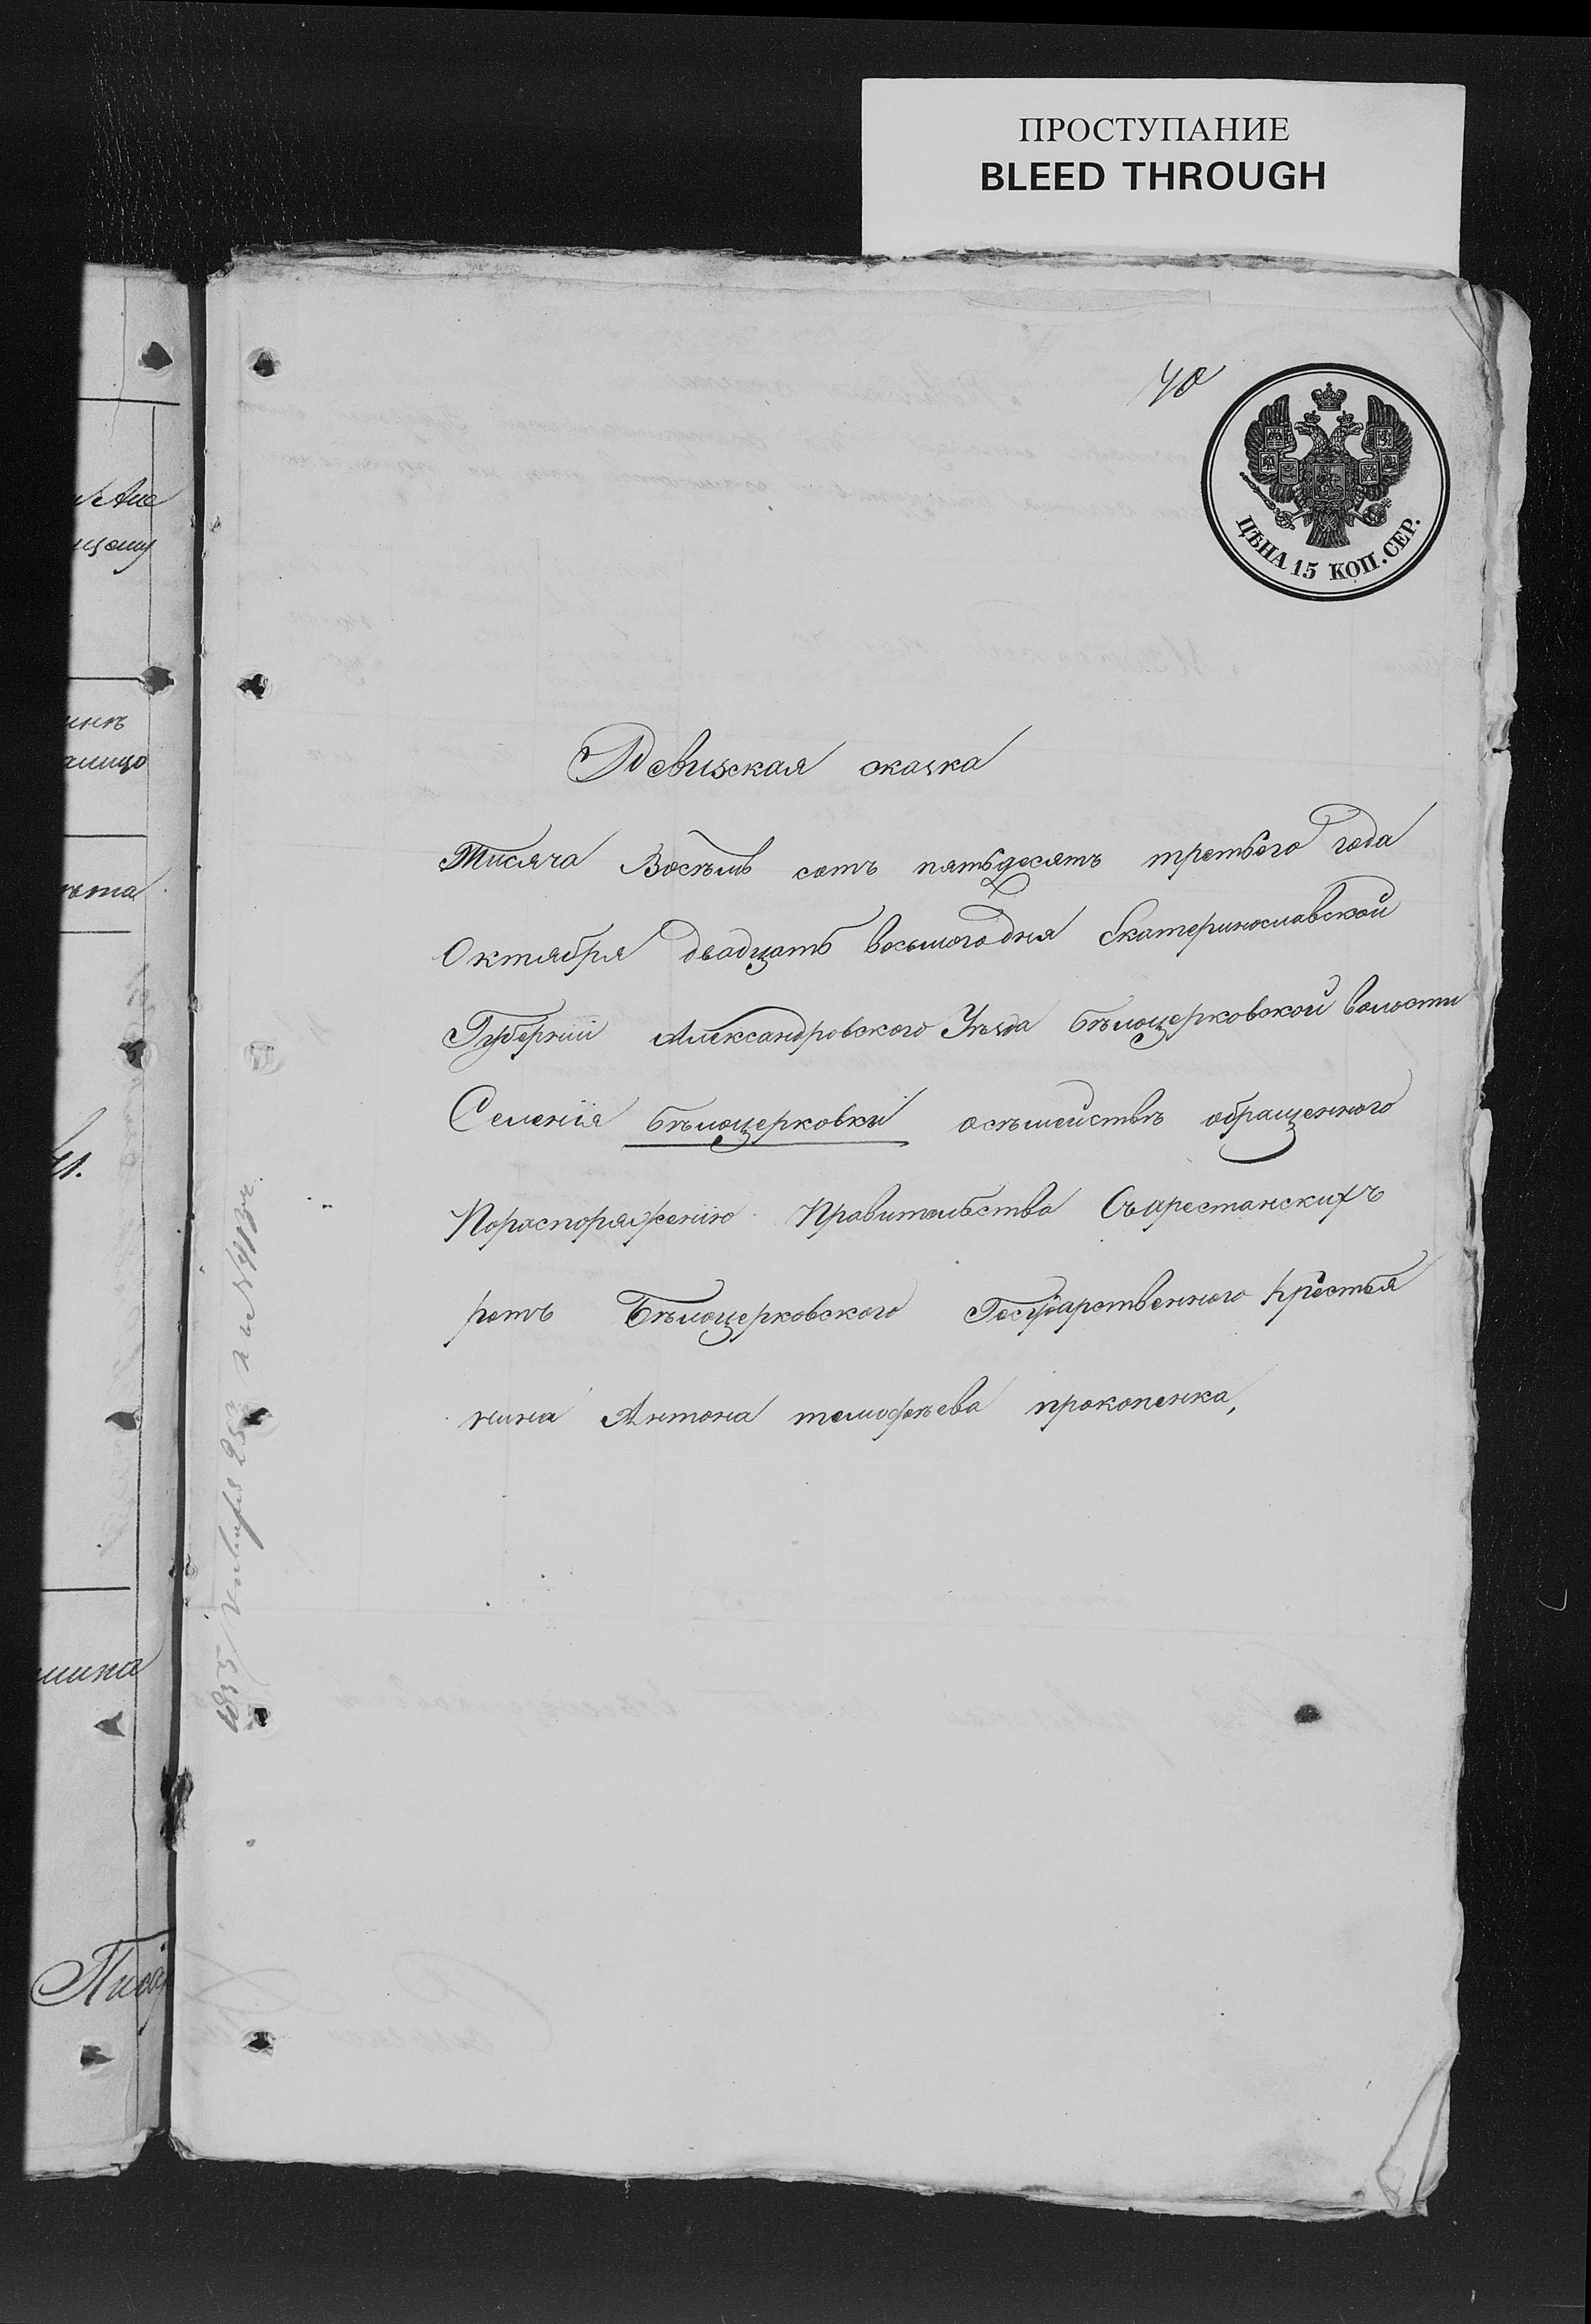 ПРОСТУПАНИЕ
BLEED THROUGH
40
ЦѢНА 15 КОП. СЕР.
Ревизская сказка
Тисяча Восѣмь сотъ пятьдесятъ третьего года
Октября двадцать восьмого дня Екатеринославской
Губернии Александровского Уѣзда бѣлоцерковской волости
Селенія бѣлоцерковки осѣмействѣ обращенного
Пораспоряженію Правительства Съарестанскихъ
ротъ Бѣлоцерковского Государственного Крестья
нина Антона темофѣева прокопенка,
41.